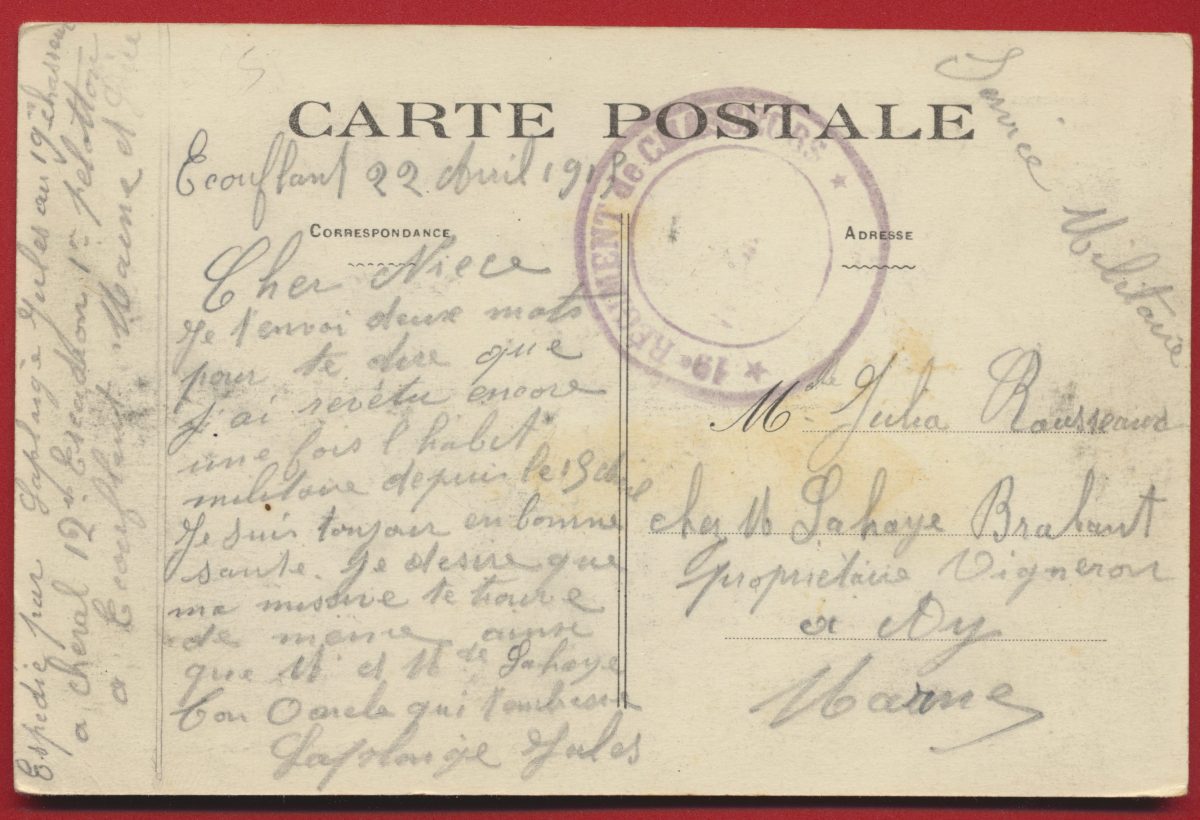 CARTE POSTALE
Service Militaire
19e REGIMENT de CHASSEURS
Ecouflant 22 Avril 1915
CORRESPONDANCE
ADRESSE
Cher Niece
Je t'envoi deux mots
pour te dire que
j'ai revétu encore
une fois l'habit
militaire depuis le 15
Je suis toujour en bonne
sante. Je desire que
ma missive te trouve
de même ainsi
que M et Mde Lahaye
Ton Oncle qui t'embrasse
Laplaige Jules
Mlle Julia Rousseaux
chez M Lahaye Brabant
propriétaire Vigneron
a Ay
Marne
Expedié par Laplaige Jules au 19eme chasseur
a cheval 12e Escadron 1er pelotton
a Ecouflant Maine et Loire